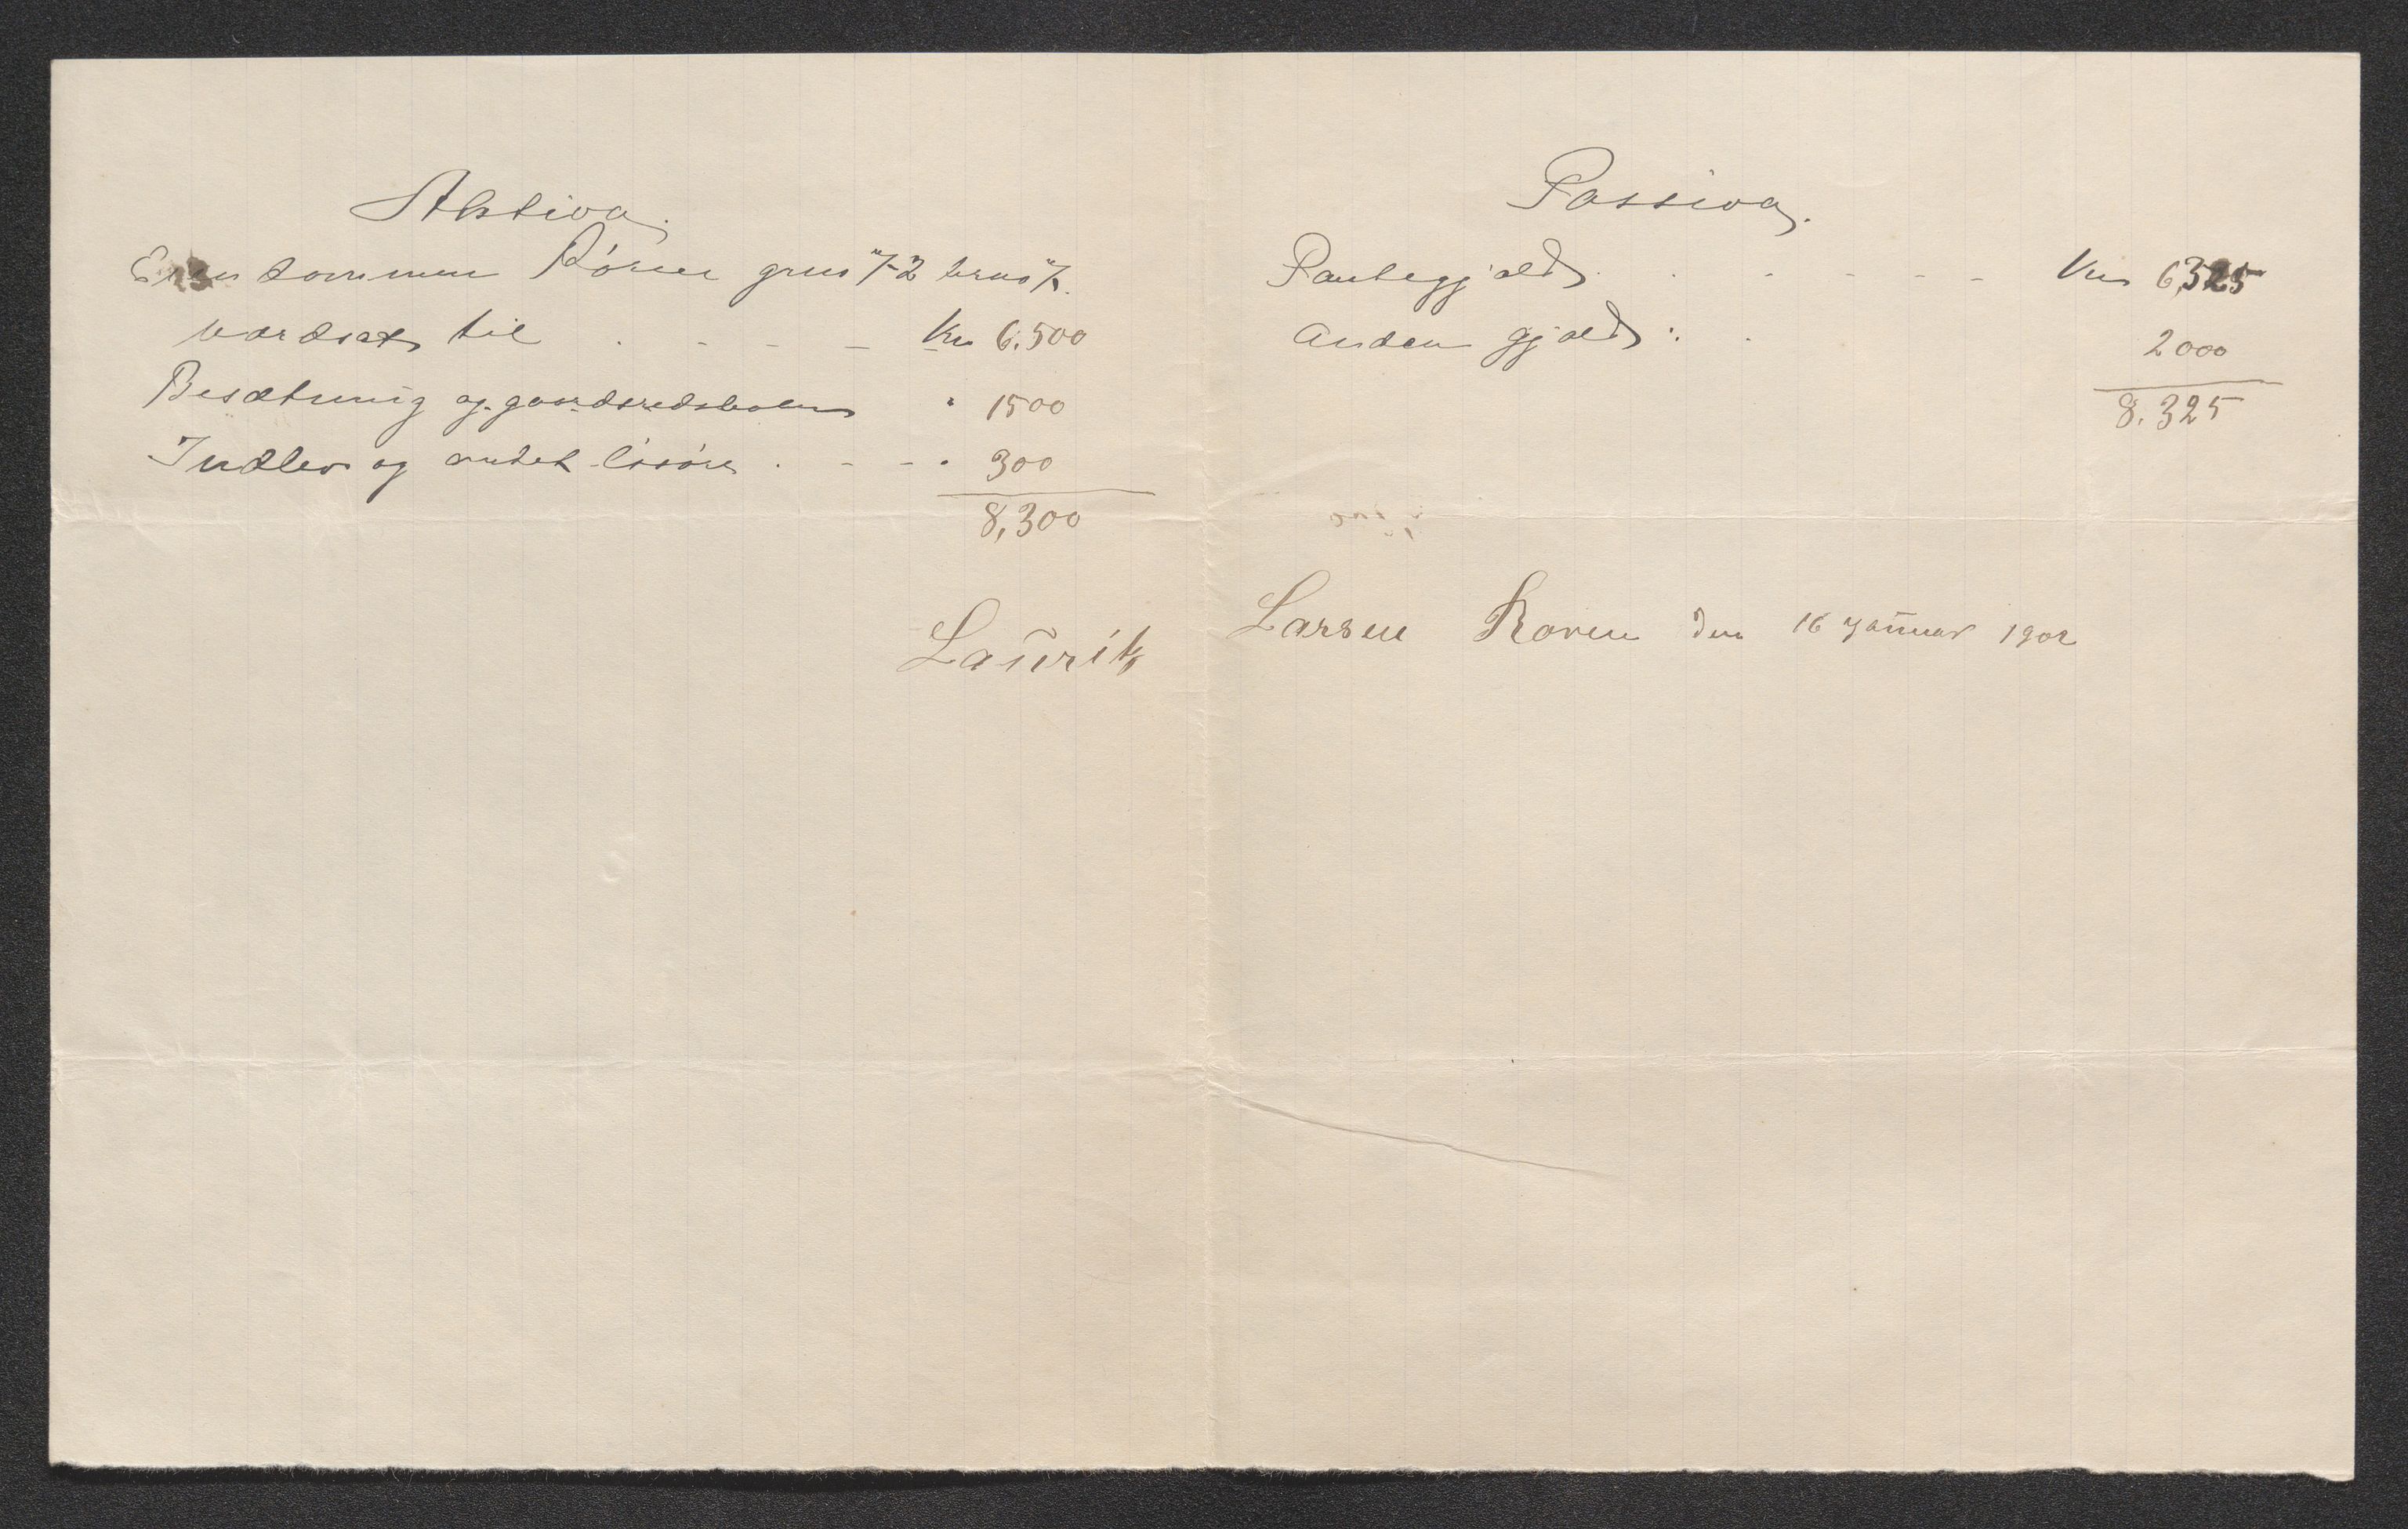 Aktiva.
Eiendommen Rören gruno 72 bruno 7.
værdsat til . - - - Kr 6.500
Besætning og gaardsredskaber " 1500
Indbo og andet lösöre . - - " 300
8,300
Passiva.
Pantegjæld . . - - - - Kr 6,325
Anden gjæld : . 2000
8.325
Laurits Larsen Roren den 16 januar 1902